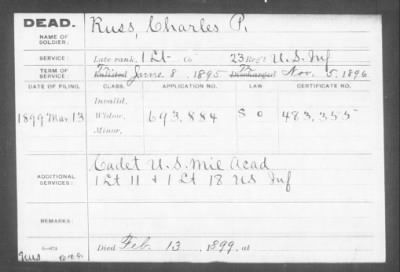 DEAD. Russ, Charles P.
NAME OF SOLDIER:
SERVICE: Late rank, 1 Lt Co 23 Reg't U.S. Inf
TERM OF SERVICE: Enlisted June 8, 1895 Discharged Nov. 5, 1896
DATE OF FILING. CLASS. APPLICATION NO. LAW CERTIFICATE NO.
Invalid,
1899 Mar. 13 Widow, 693,884 80 483,355
Minor,
ADDITIONAL SERVICES: Cadet U.S. Mil Acad
1 Lt 11 & 1 Lt 18 US Inf
REMARKS:
Died Feb. 13, 1899, at